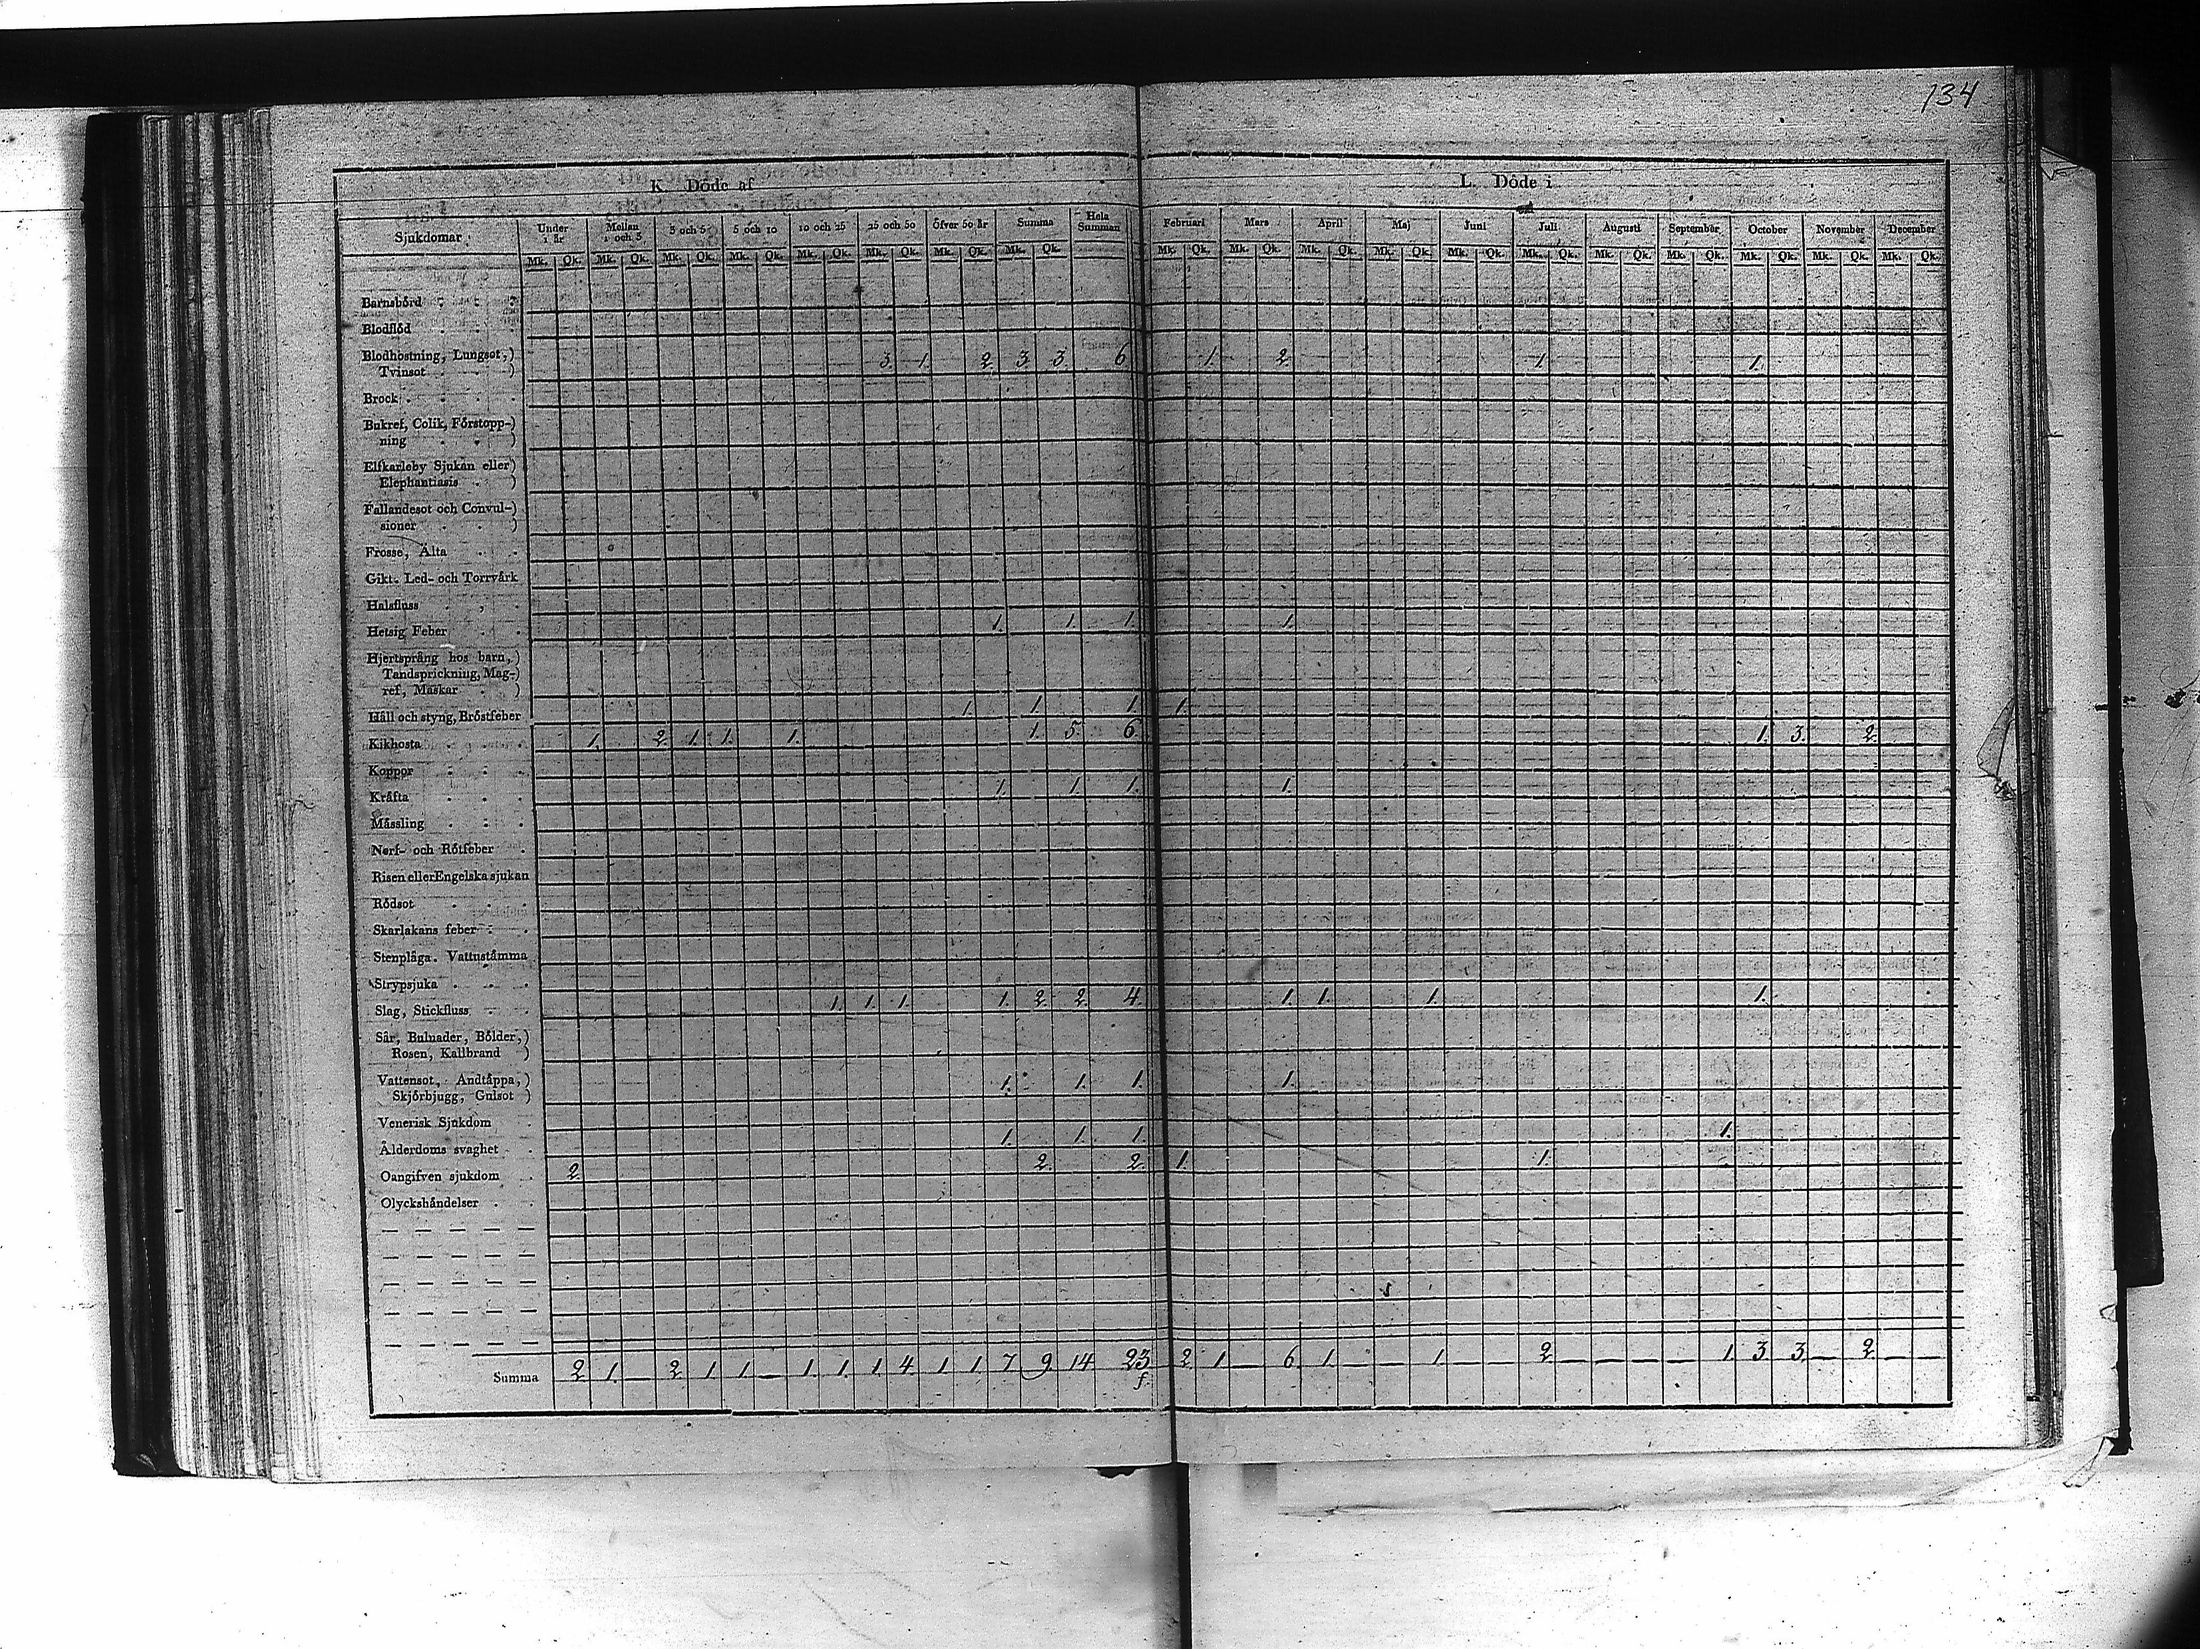 134
K. Döde af
L. Döde i
Sjukdomar. Under 1 år Mellan 1 och 3 3 och 5 5 och 10 10 och 25 25 och 50 Öfver 50 år Summa Hela Summan Februari Mars April Maj Juni Juli Augusti September October November December
Mk. Qk. Mk. Qk. Mk. Qk. Mk. Qk. Mk. Qk. Mk. Qk. Mk. Qk. Mk. Qk. Mk. Qk. Mk. Qk. Mk. Qk. Mk. Qk. Mk. Qk. Mk. Qk. Mk. Qk. Mk. Qk. Mk. Qk. Mk. Qk. Mk. Qk.
Barnsbörd
Blodflöd
Blodhostning, Lungsot,)
Tvinsot ) 3. 1. 2. 3. 3. 6 1. 2. 1. 1.
Brock
Bukref, Colik, Förstopp-)
ning )
Elfkarleby Sjukan eller)
Elephantiasis )
Fallandesot och Convul-)
sioner )
Frosse, Älta
Gikt. Led- och Torrvärk
Halsfluss
Hetsig Feber 1. 1. 1. 1.
Hjertsprång hos barn,)
Tandsprickning, Mag-)
ref, Maskar )
Håll och styng, Bröstfeber 1. 1. 1. 1.
Kikhosta 1. 2. 1. 1. 1. 1. 5. 6. 1. 3. 2.
Koppor
Kräfta 1. 1. 1. 1.
Mässling
Nerf- och Rötfeber
Risen eller Engelska sjukan
Rödsot
Skarlakans feber
Stenplåga. Vattustämma
Strypsjuka
Slag, Stickfluss 1. 1. 1. 1. 2. 2. 4. 1. 1. 1. 1.
Sår, Bulnader, Bölder,)
Rosen, Kallbrand )
Vattensot, Andtäppa,)
Skjörbjugg, Gulsot ) 1. 1. 1. 1.
Venerisk Sjukdom
Ålderdoms svaghet 1. 1. 1. 1.
Oangifven sjukdom 2. 2. 2. 1. 1.
Olyckshändelser
Summa 2. 1. — 2. 1. 1. — 1. 1. 1. 4. 1. 1. 7. 9. 14. 23 2. 1. — 6. 1. — — 1. — — 2. — — — — 1. 3. 3. — 2. — —